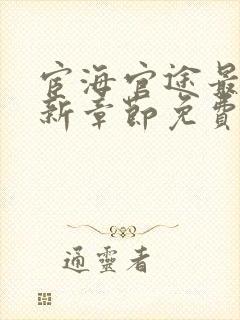 宦海官途最
新章節免費
通靈者